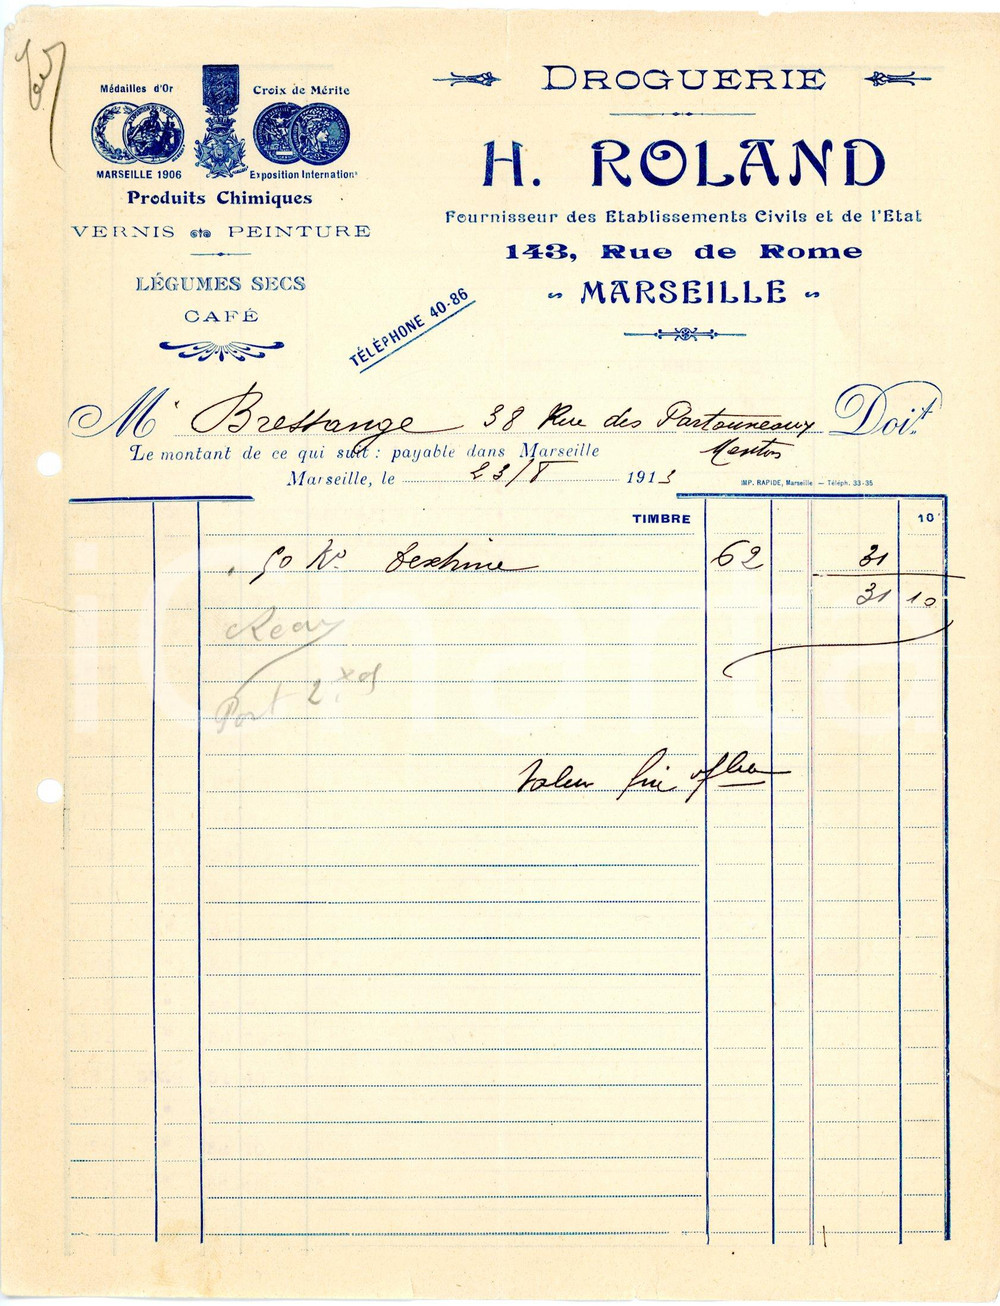 Médailles d'Or
Croix de Mérite
MARSEILLE 1906
Exposition Internation
Produits Chimiques
VERNIS PEINTURE
LÉGUMES SECS
CAFÉ
DROGUERIE
H. ROLAND
Fournisseur des Etablissements Civils et de l'Etat
143, Rue de Rome
MARSEILLE
TÉLÉPHONE 40-86
M Bressange 38 Rue des Partouneaux Doit
Menton
Le montant de ce qui suit : payable dans Marseille
Marseille, le 23/8 1913
IMP. RAPIDE, Marseille — Téléph. 33-35
TIMBRE 10
50 Ko dextrine 62 31
31 10
Port 2
Valeur fin